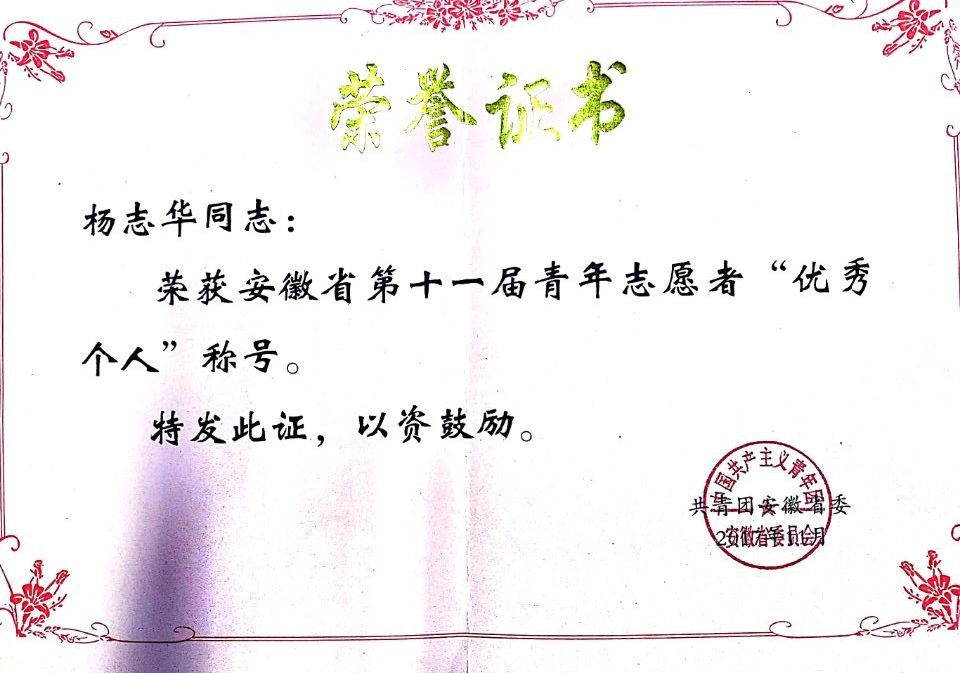 荣誉证书
杨志华同志：
荣获安徽省第十一届青年志愿者“优秀
个人”称号。
特发此证，以资鼓励。
中国共产主义青年团
共青团安徽省委
安徽省委员会
2017年11月